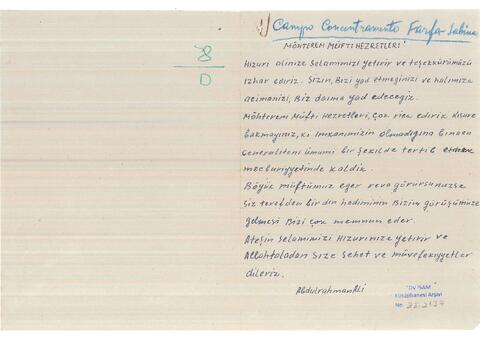 8
D
Campo Concentramento Farfa Sabina
MÖHTEREM MÜFTI HEZRETLERI!
Hizuri alinize Selamimizi yetirir ve teşekkürümüzü
izhar ediriz. Sizin, Bizi yad etmeginizi ve halimize
acimanizi, Biz daima yad edecegiz.
Möhterem Müfti Hezretleri, çok rica ederik kisure
bakmayiniz, ki imkanimizin olmadigina binaen
Generaliteni umumi bir şekilde tertib etmek
mecburiyyetinde kaldik.
Böyük müftümüz eger reva görürsunuzse
Siz terefden bir din hadiminin Bizim görüşümüze
gelmesi Bizi çok memnun eder.
Ateşin Selamimizi Hizurinize yetirir ve
Allahtaladan Size Sehet ve müvefekiyyetler
dileriz.
AbdulrahmanAli
TDV İSAM
Kütüphanesi Arşivi
No: